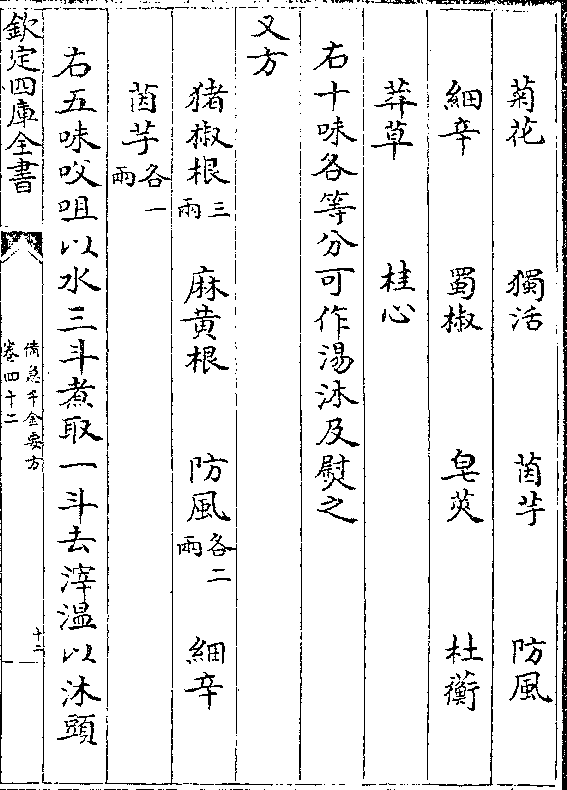 菊花　獨活　茵芋　防風
細辛　蜀椒　皂莢　杜蘅
莽草　桂心
右十味各等分可作湯沐及熨之
又方
猪椒根三兩　麻黄根　防風各二兩　細辛
茵芋各一兩
右五味㕮咀以水三斗煮取一斗去滓温以沐頭
欽定四庫全書
備急千金要方
卷四十二
十二